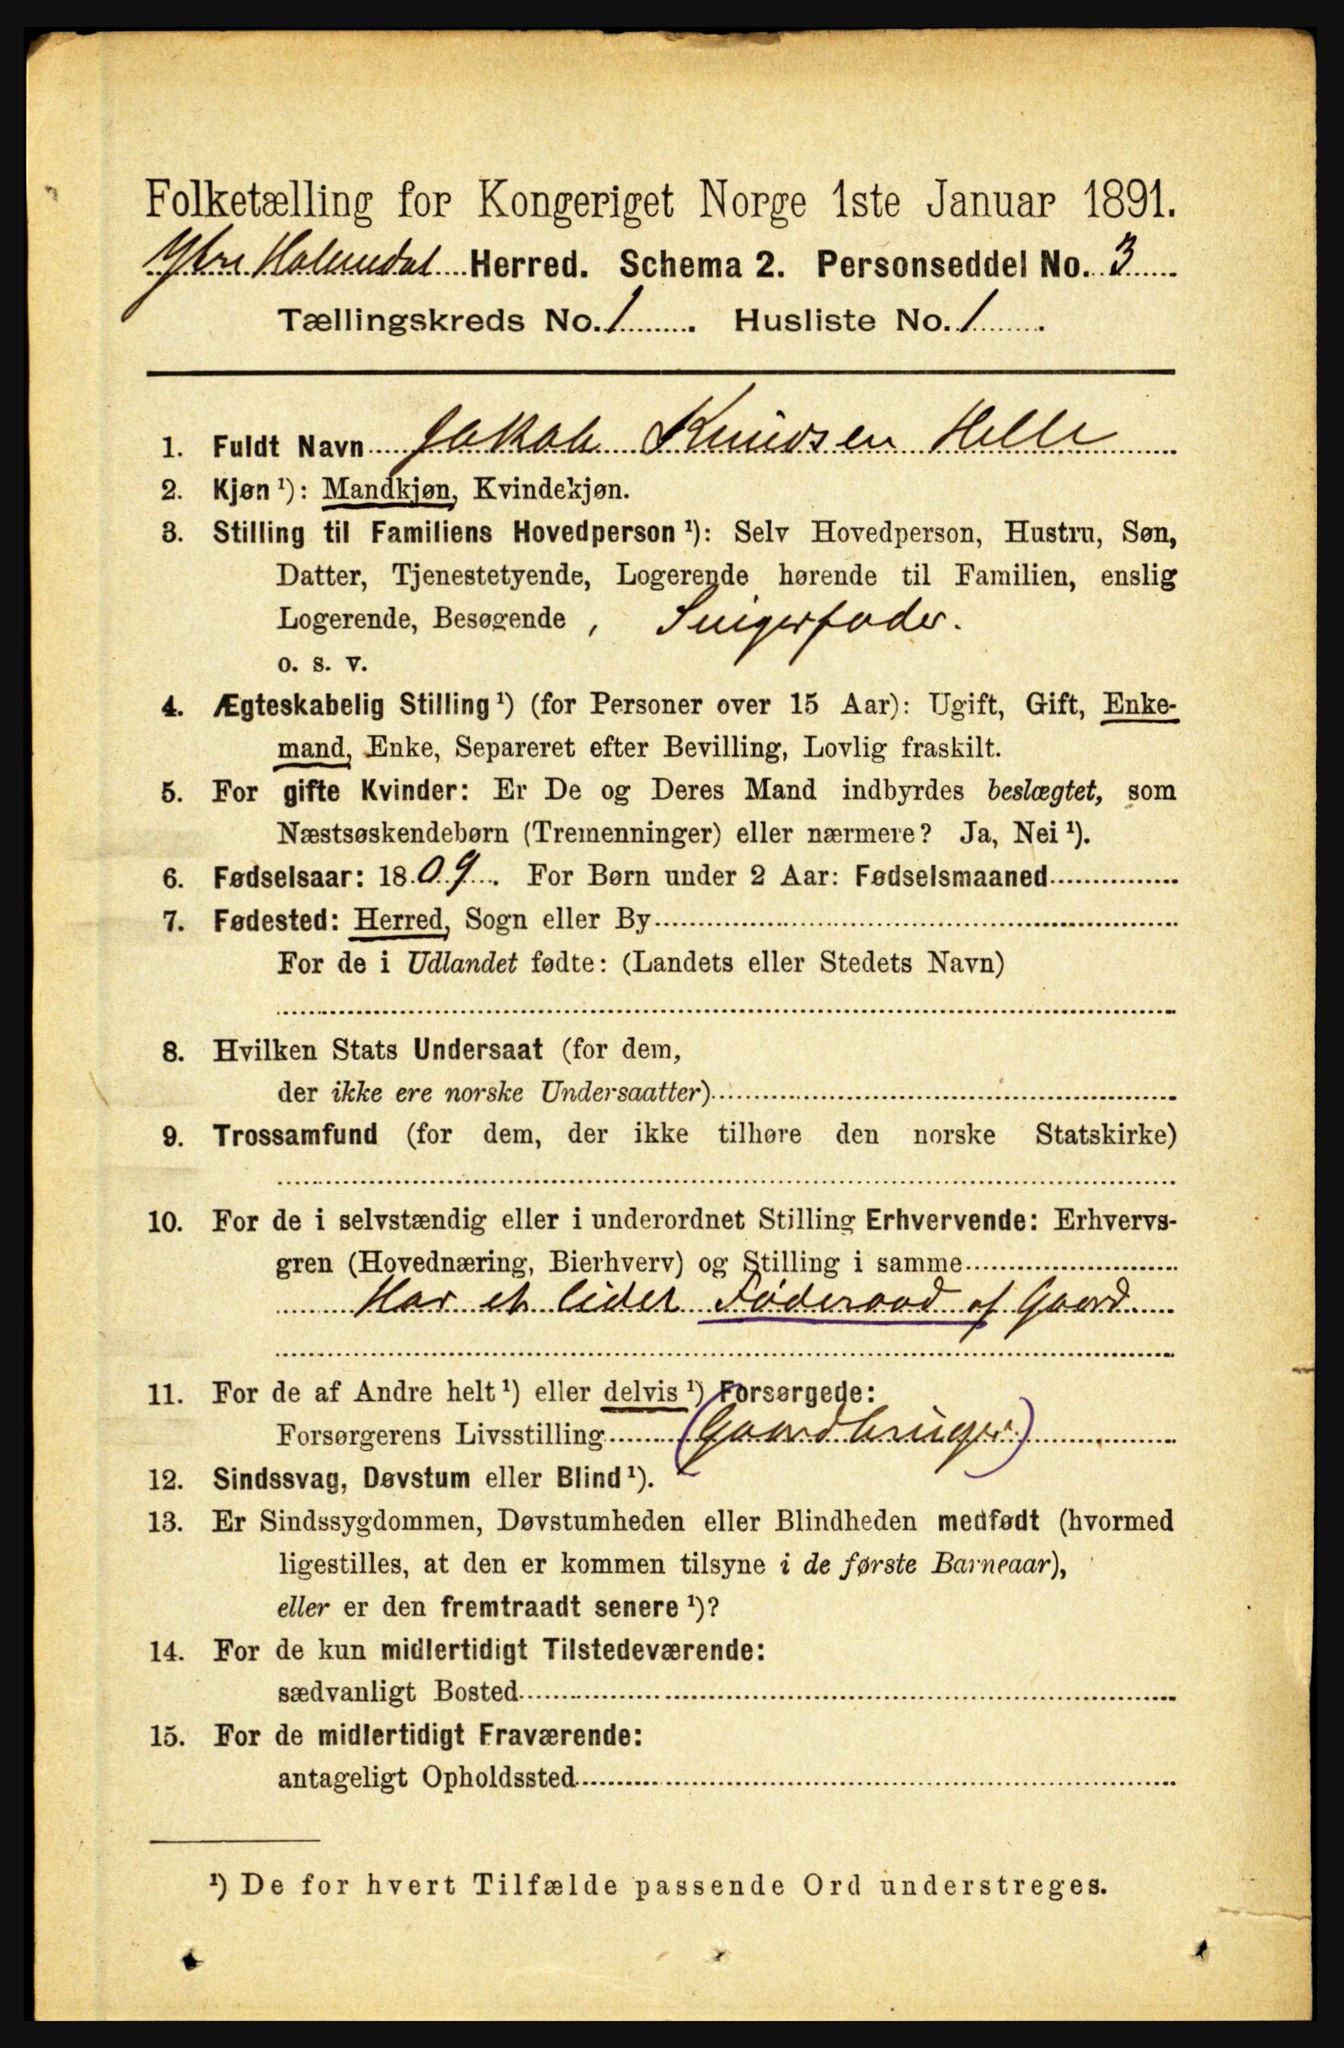 Folketælling for Kongeriget Norge 1ste Januar 1891.
Ytre Holmedal Herred. Schema 2. Personseddel No. 3
Tællingskreds No. 1. Husliste No. 1.
1. Fuldt Navn Jakob Knudsen Helle
2. Kjøn ¹): Mandkjøn, Kvindekjøn.
3. Stilling til Familiens Hovedperson ¹): Selv Hovedperson, Hustru, Søn,
Datter, Tjenestetyende, Logerende hørende til Familien, enslig
Logerende, Besøgende, Svigerfader.
o. s. v.
4. Ægteskabelig Stilling ¹) (for Personer over 15 Aar): Ugift, Gift, Enke-
mand, Enke, Separeret efter Bevilling, Lovlig fraskilt.
5. For gifte Kvinder: Er De og Deres Mand indbyrdes beslægtet, som
Næstsøskendebørn (Tremenninger) eller nærmere? Ja, Nei ¹).
6. Fødselsaar: 1809. For Børn under 2 Aar: Fødselsmaaned
7. Fødested: Herred, Sogn eller By
For de i Udlandet fødte: (Landets eller Stedets Navn)
8. Hvilken Stats Undersaat (for dem,
der ikke ere norske Undersaatter)
9. Trossamfund (for dem, der ikke tilhøre den norske Statskirke)
10. For de i selvstændig eller i underordnet Stilling Erhvervende: Erhvervs-
gren (Hovednæring, Bierhverv) og Stilling i samme
Har et lidet Føderaad af Gaard
11. For de af Andre helt ¹) eller delvis ¹) Forsørgede:
Forsørgerens Livsstilling (Gaardbruger)
12. Sindssvag, Døvstum eller Blind ¹).
13. Er Sindssygdommen, Døvstumheden eller Blindheden medfødt (hvormed
ligestilles, at den er kommen tilsyne i de første Barneaar),
eller er den fremtraadt senere ¹)?
14. For de kun midlertidigt Tilstedeværende:
sædvanligt Bosted
15. For de midlertidigt Fraværende:
antageligt Opholdssted
¹) De for hvert Tilfælde passende Ord understreges.